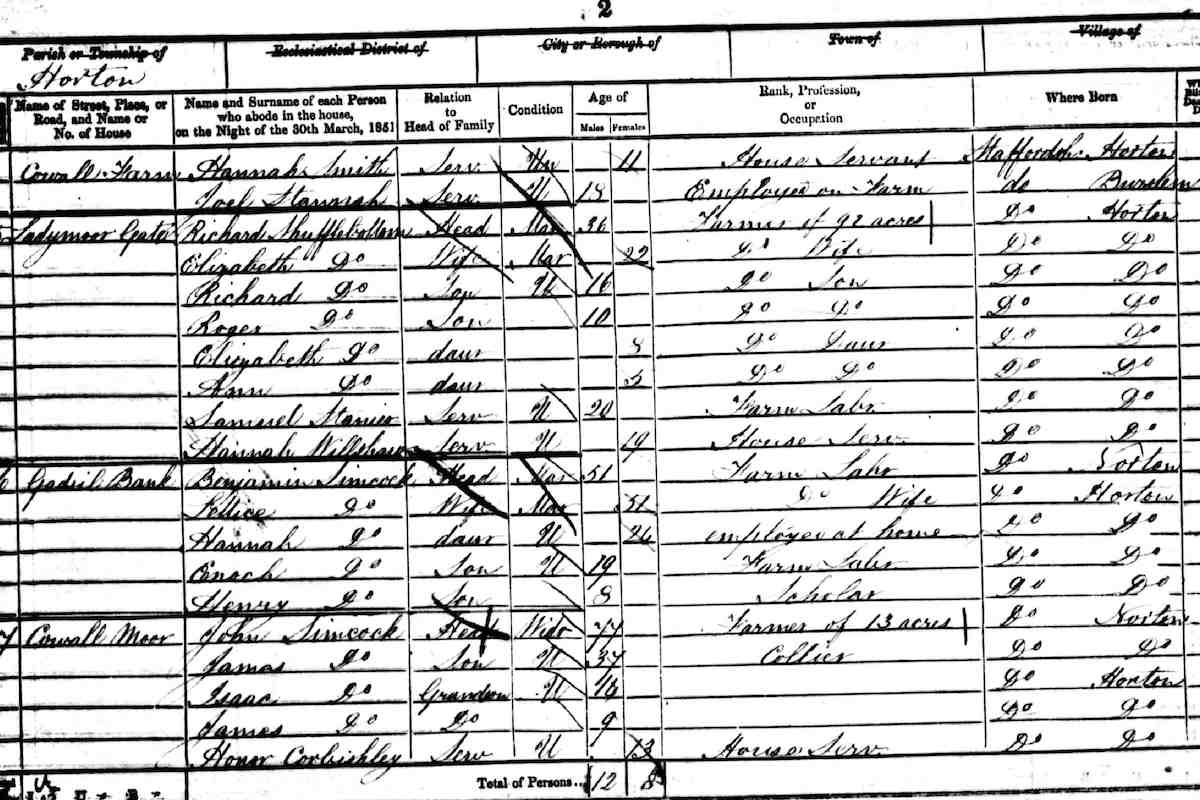 2
Parish or Township of Ecclesiastical District of City or Borough of Town of Village of
Horton
Name of Street, Place, or Road, and Name or No. of House Name and Surname of each Person who abode in the house, on the Night of the 30th March, 1851 Relation to Head of Family Condition Age of Males Females Rank, Profession, or Occupation Where Born
Cowall Farm Hannah Smith Serv Un 11 House Servant Staffordsh Horton
Joel Serv U 18 Employed on Farm do Burslem
Ladymoor Gate Richard Shufflebottom Head Mar 36 Farmer of 92 acres Do Horton
Elizabeth Do Wife Mar Do Wife Do Do
Richard Do Son U 16 Do Son Do Do
Roger Do Son 10 Do Do Do Do
Elizabeth Do daur 8 Do Daur Do Do
Ann Do daur 5 Do Do Do Do
Samuel Stanier Serv U 20 Farm Labr Do Do
Hannah Willshaw Serv U 19 House Serv Do Do
6 Gadsil Bank Benjamin Simcock Head Mar 51 Farm Labr Do Norton
Do Wife Mar 51 Do Wife Do Horton
Hannah Do daur U 26 employed at home Do Do
Enoch Do Son U 19 Farm Labr Do Do
Henry Do Son 8 Scholar Do Do
7 Cowall Moor John Simcock Head Widr 77 Farmer of 13 acres Do Norton
James Do Son U 37 Collier Do Do
Isaac Do Grandson U Do Horton
James Do Do 9 Do Do
Honor Corbishley Serv U 13 House Serv Do Do
Total of Persons... 12 8